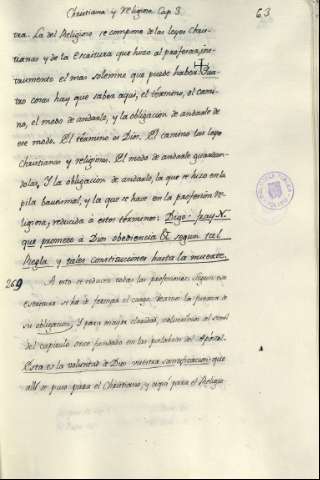 Christiana y Religiosa Cap. 3.
63
tra. La del Religioso se compone de las leyes Chris-
tianas y de la Escritura que hizo al profesar, ins-
trumento el mas solemne que puede haber. Qua-
tro cosas hay que saber aqui, el termino, el cami-
no, el modo de andarlo, y la obligacion de andarle de
ese modo. El termino es Dios. El camino las leyes
Christianas y religiosas. El modo de andarle guardan-
dolas, Y la obligacion de andarlo, la que se hizo en la
pila bautismal, y la que se hace en la profesion Re-
ligiosa, reducida à estos terminos: Digo: fray N.
que prometo à Dios obediencia &c segun tal
Regla y tales constituciones hasta la muerte.
269 A esto se reducen todas las profesiones. Segun esa
escritura se ha de formar el cargo
su obligacion. Y para mayor claridad, volvamos al
del capitulo once fundado en las palabras del Apostol.
Esta es la voluntad de Dios vuestra santificacion: que
alli se puso para el Christiano, y aqui para el Religio